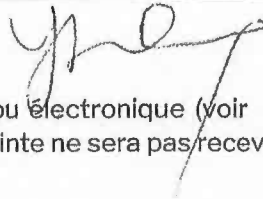 ou électronique (voir
inte ne sera pas recev